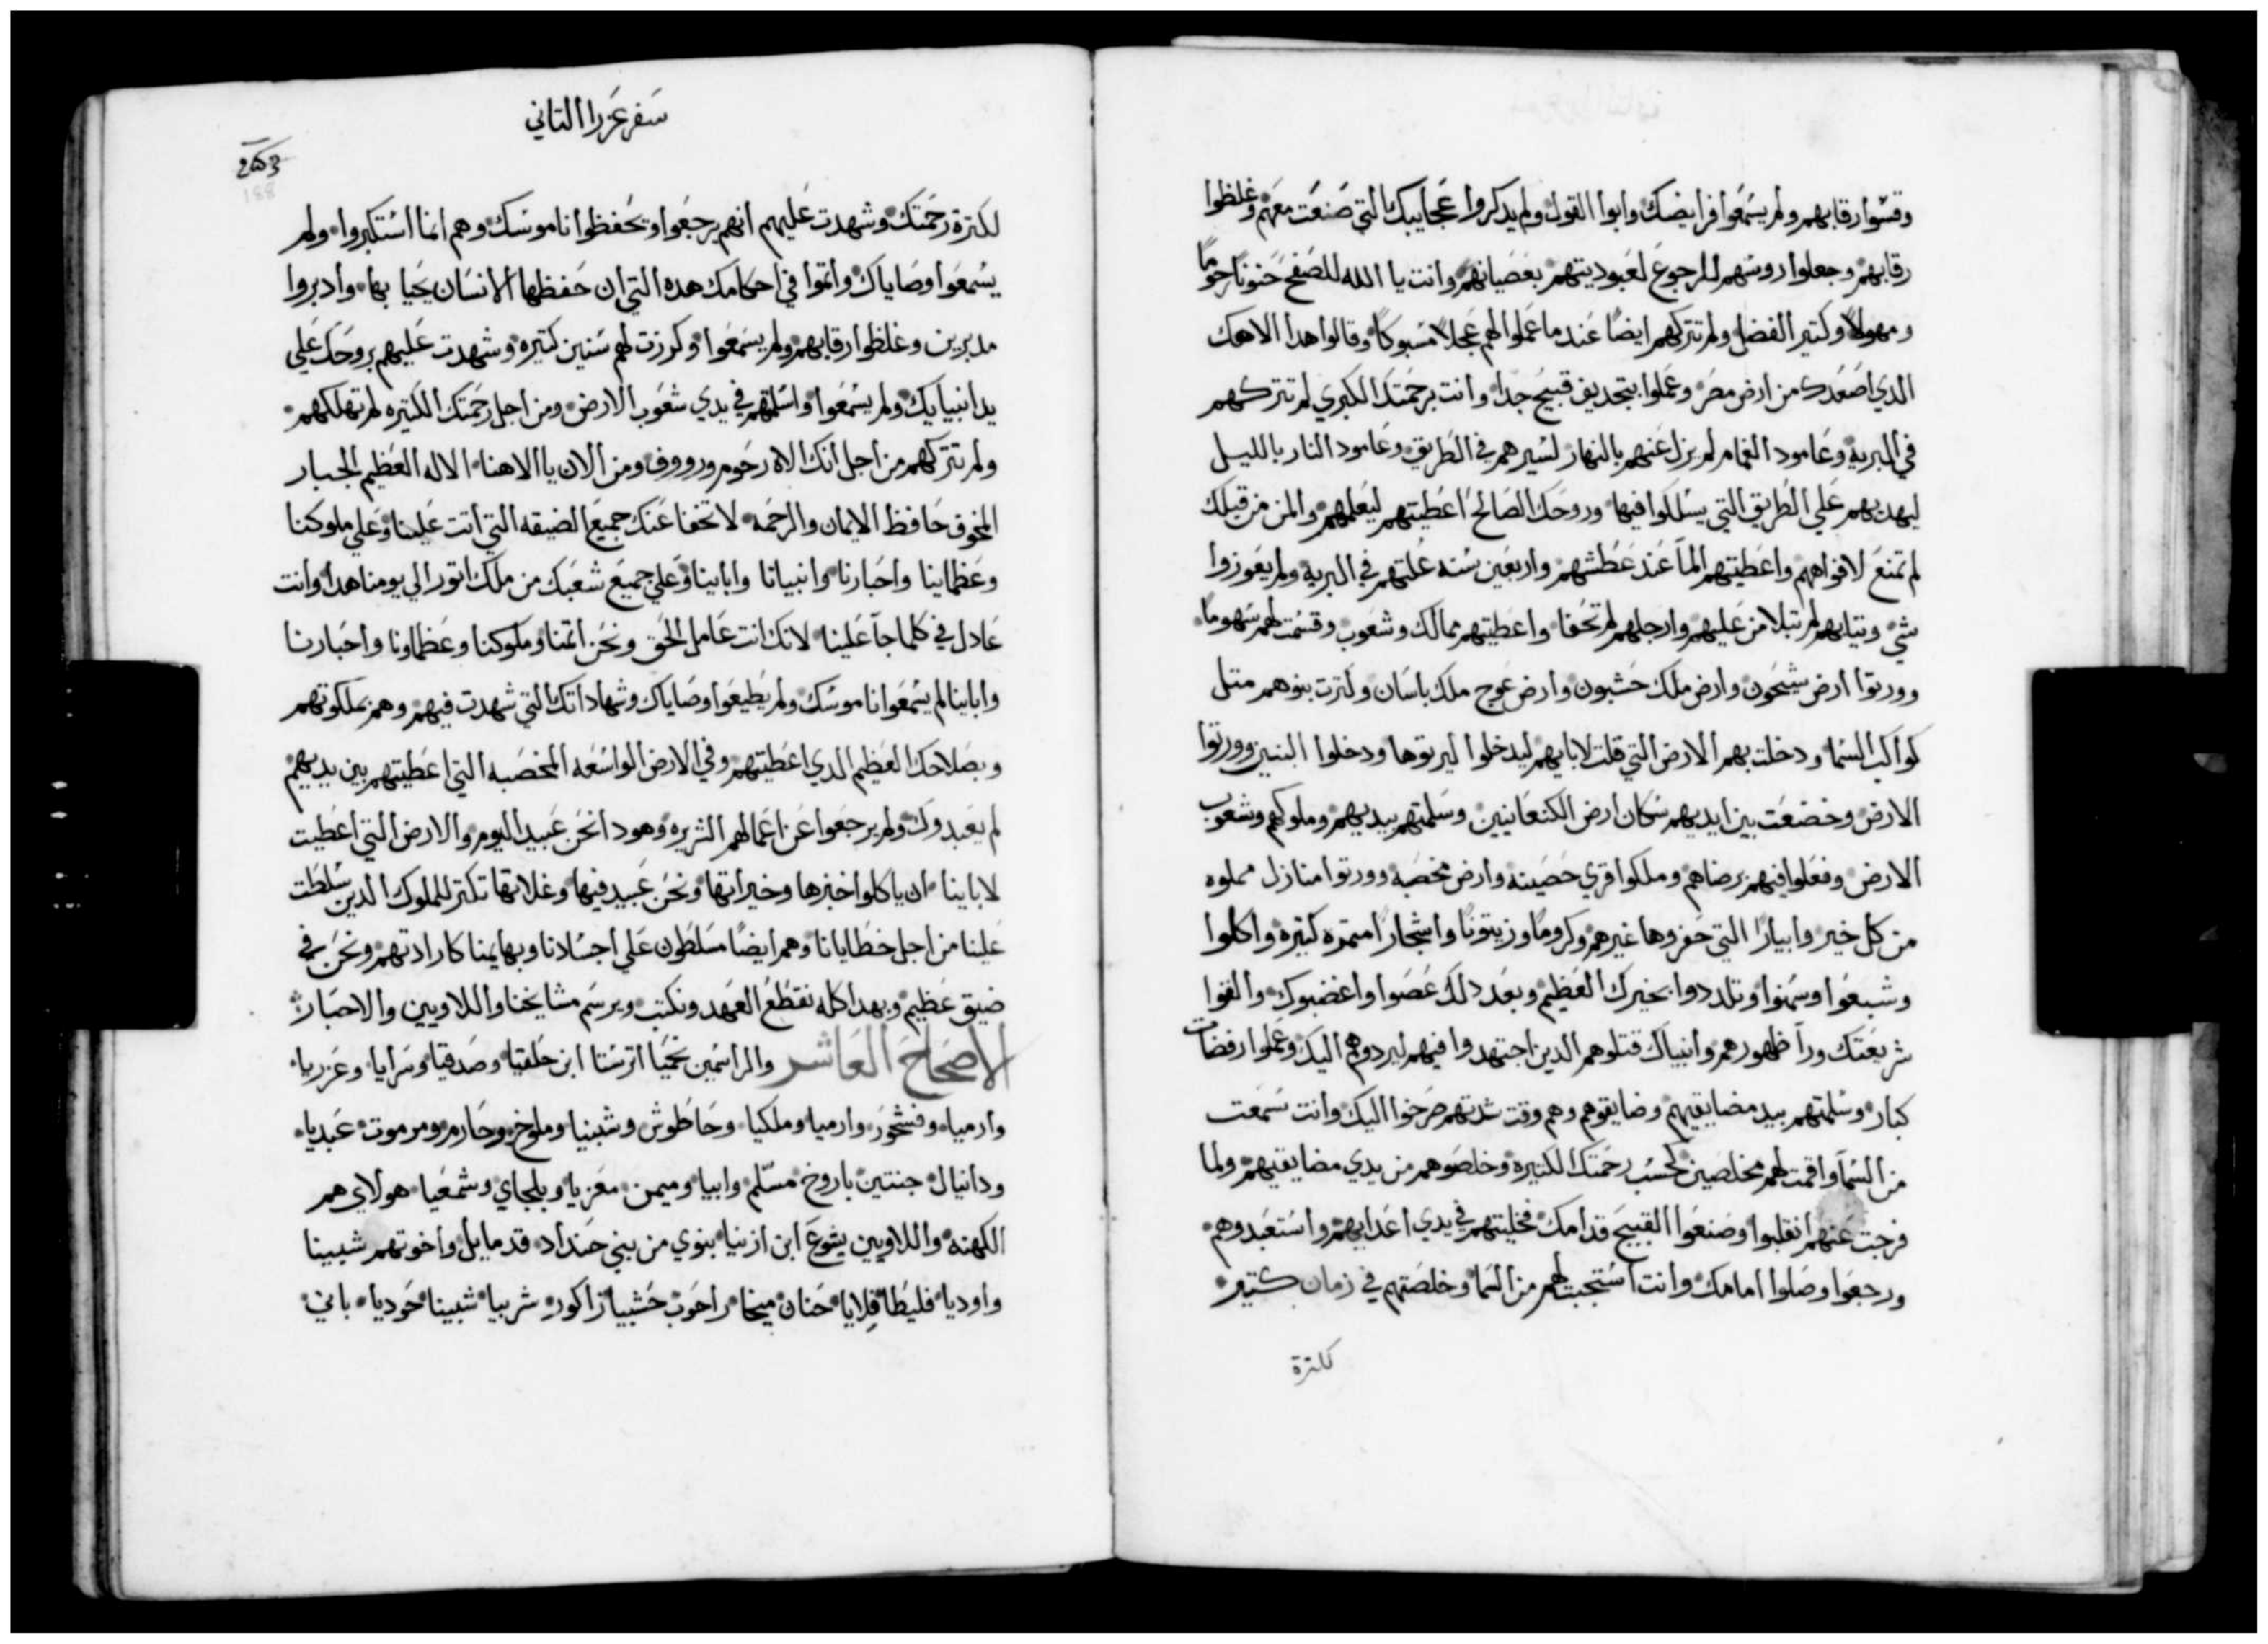 وقسوا رقابهم ولم يسمعوا فرايضك وابوا القول ولم يدكروا عجايبك التي صنعت معهم وغلظوا
رقابهم وجعلوا روسهم للرجوع لعبوديتهم بعصيانهم وانت يا الله للصفح حنونا رحوما
ومهولا وكتير الفضل ولم تتركهم ايضا عند ما عملوا لهم عجلا مسبوكا وقالوا هدا الاهك
الدي اصعدك من ارض مصر وعملوا بتجديف قبيح جدا وانت برحمتك الكبري لم تتركهم
في البرية وعامود الغمام لم يزل عنهم بالنهار لسيرهم في الطريق وعامود النار بالليل
ليهديهم علي الطريق التي يسلكوا فيها وروحك الصالح اعطيتهم ليعلمهم والمن من قبلك
لم تمنع لافواههم واعطيتهم المآ عند عطشهم واربعين سنه علتهم في البرية ولم يعوزوا
شي وتيابهم لم تبلا من عليهم وارجلهم لم تحفا واعطيتهم ممالك وشعوب وقسمت لهم سهوما
وورتوا ارض شيحون وارض ملك حشبون وارض عوج ملك باسان وكترت بنوهم متل
كواكب السما ودخلت بهم الارض التي قلت لابايهم ليدخلوا ليرتوها ودخلوا البنين وورتوا
الارض وخضعت بين ايديهم سكان ارض الكنعانيين وسلمتهم بيديهم وملوكهم وشعوب
الارض وفعلوا فيهم برضاهم وملكوا قري حصينه وارض مخصبه وورتوا منازل مملوه
من كل خير وابيارا التي حفروها غيرهم وكروما وزيتونا واشجارا متمره كتيره واكلوا
وشبعوا وسمنوا وتلددوا بخيرك العظيم وبعد دلك عصوا واغضبوك والقوا
شريعتك ورآ ظهورهم وانبياك قتلوهم الدين اجتهدوا فيهم ليردوهم اليك وعملوا رفضات
كبار وسلمتهم بيد مضايقيهم وضايقوهم وهم وقت شدتهم صرخوا اليك وانت سمعت
من السمآ واقمت لهم مخلصين كحسب رحمتك الكتيره وخلصوهم من يدي مضايقيهم ولما
فرجت عنهم انقلبوا وصنعوا القبيح قدامك فخليتهم في يدي اعدايهم واستعبدوهم
ورجعوا وصلوا امامك وانت استجبت لهم من السما وخلصتهم في زمان كتير
لكترة
سفر عزرا التاني
188
لكترة رحمتك وشهدت عليهم انهم يرجعوا وتحفظوا ناموسك وهم انما استكبروا ولم
يسمعوا وصاياك واتموا في احكامك هده التي ان حفظها الانسان يحيا بها وادبروا
مدبرين وغلظوا رقابهم ولم يسمعوا وكوزت لهم سنين كتيره وشهدت عليهم بروحك علي
يد انبيايك ولم يسمعوا واسلمتهم في يدي شعوب الارض ومن اجل رحمتك الكتيره لم تهلكهم
ولم تتركهم من اجل انك الاه رحوم ورووف ومن الان يا الاهنا الاله العظيم الجبار
المخوف حافظ الايمان والرحمه لا تخفا عنك جميع الضيقه التي اتت علينا وعلي ملوكنا
وعظماينا واحبارنا وانبيانا وابابنا وعلي جميع شعبك من ملك اتور الي يومنا هدا وانت
عادل في كلما جآ علينا لانك انت عامل الحق ونحن اتمنا وملوكنا وعظماونا واحبارنا
وابابنا لم يسمعوا ناموسك ولم يطيعوا وصاياك وشهاداتك التي شهدت فيهم وهم بملكوتهم
وبصلاحك العظيم الدي اعطيتهم وفي الارض الواسعه المخصبه التي اعطيتهم بين يديهم
لم يعبدوك ولم يرجعوا عن اعمالهم الشريره وهودا نحن عبيد اليوم والارض التي اعطيت
لاباينا ان ياكلوا خبزها وخيراتها ونحن عبيد فيها وغلاتها تكتر للملوك الدين سلطت
علينا من اجل خطايانا وهم ايضا مسلطون علي اجسادنا وبهايمنا كارادتهم ونحن في
ضيق عظيم وبهدا كله نقطع العهد ونكتب ويرسم مشايخنا واللاويين والاحبار
الاصحاح العاشر والراسمين نحميا اترستا ابن حلقيا وصدقيا وسرايا وعزريا
وارميا وفشحور وارميا وملكيا وحاطوش وشبنيا وملوخ وحارم ومرموت عبديا
ودانيال جنتين باروخ مسلم وابيا وميمن معزيا وبلجاي وشمعيا هولاي هم
الكهنه واللاويين يشوع ابن ازنيا بنوي من بني حنداد قدمايل واخوتهم شبينا
واوديا فليطا فلايا حنان ميخا راحوب حشبيا زاكور شربيا شبينا حوديا باني